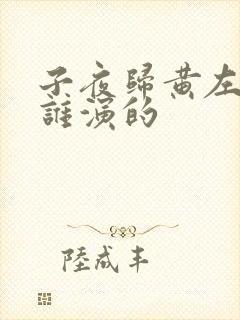 子夜歸黄左
誰演的
陸成丰